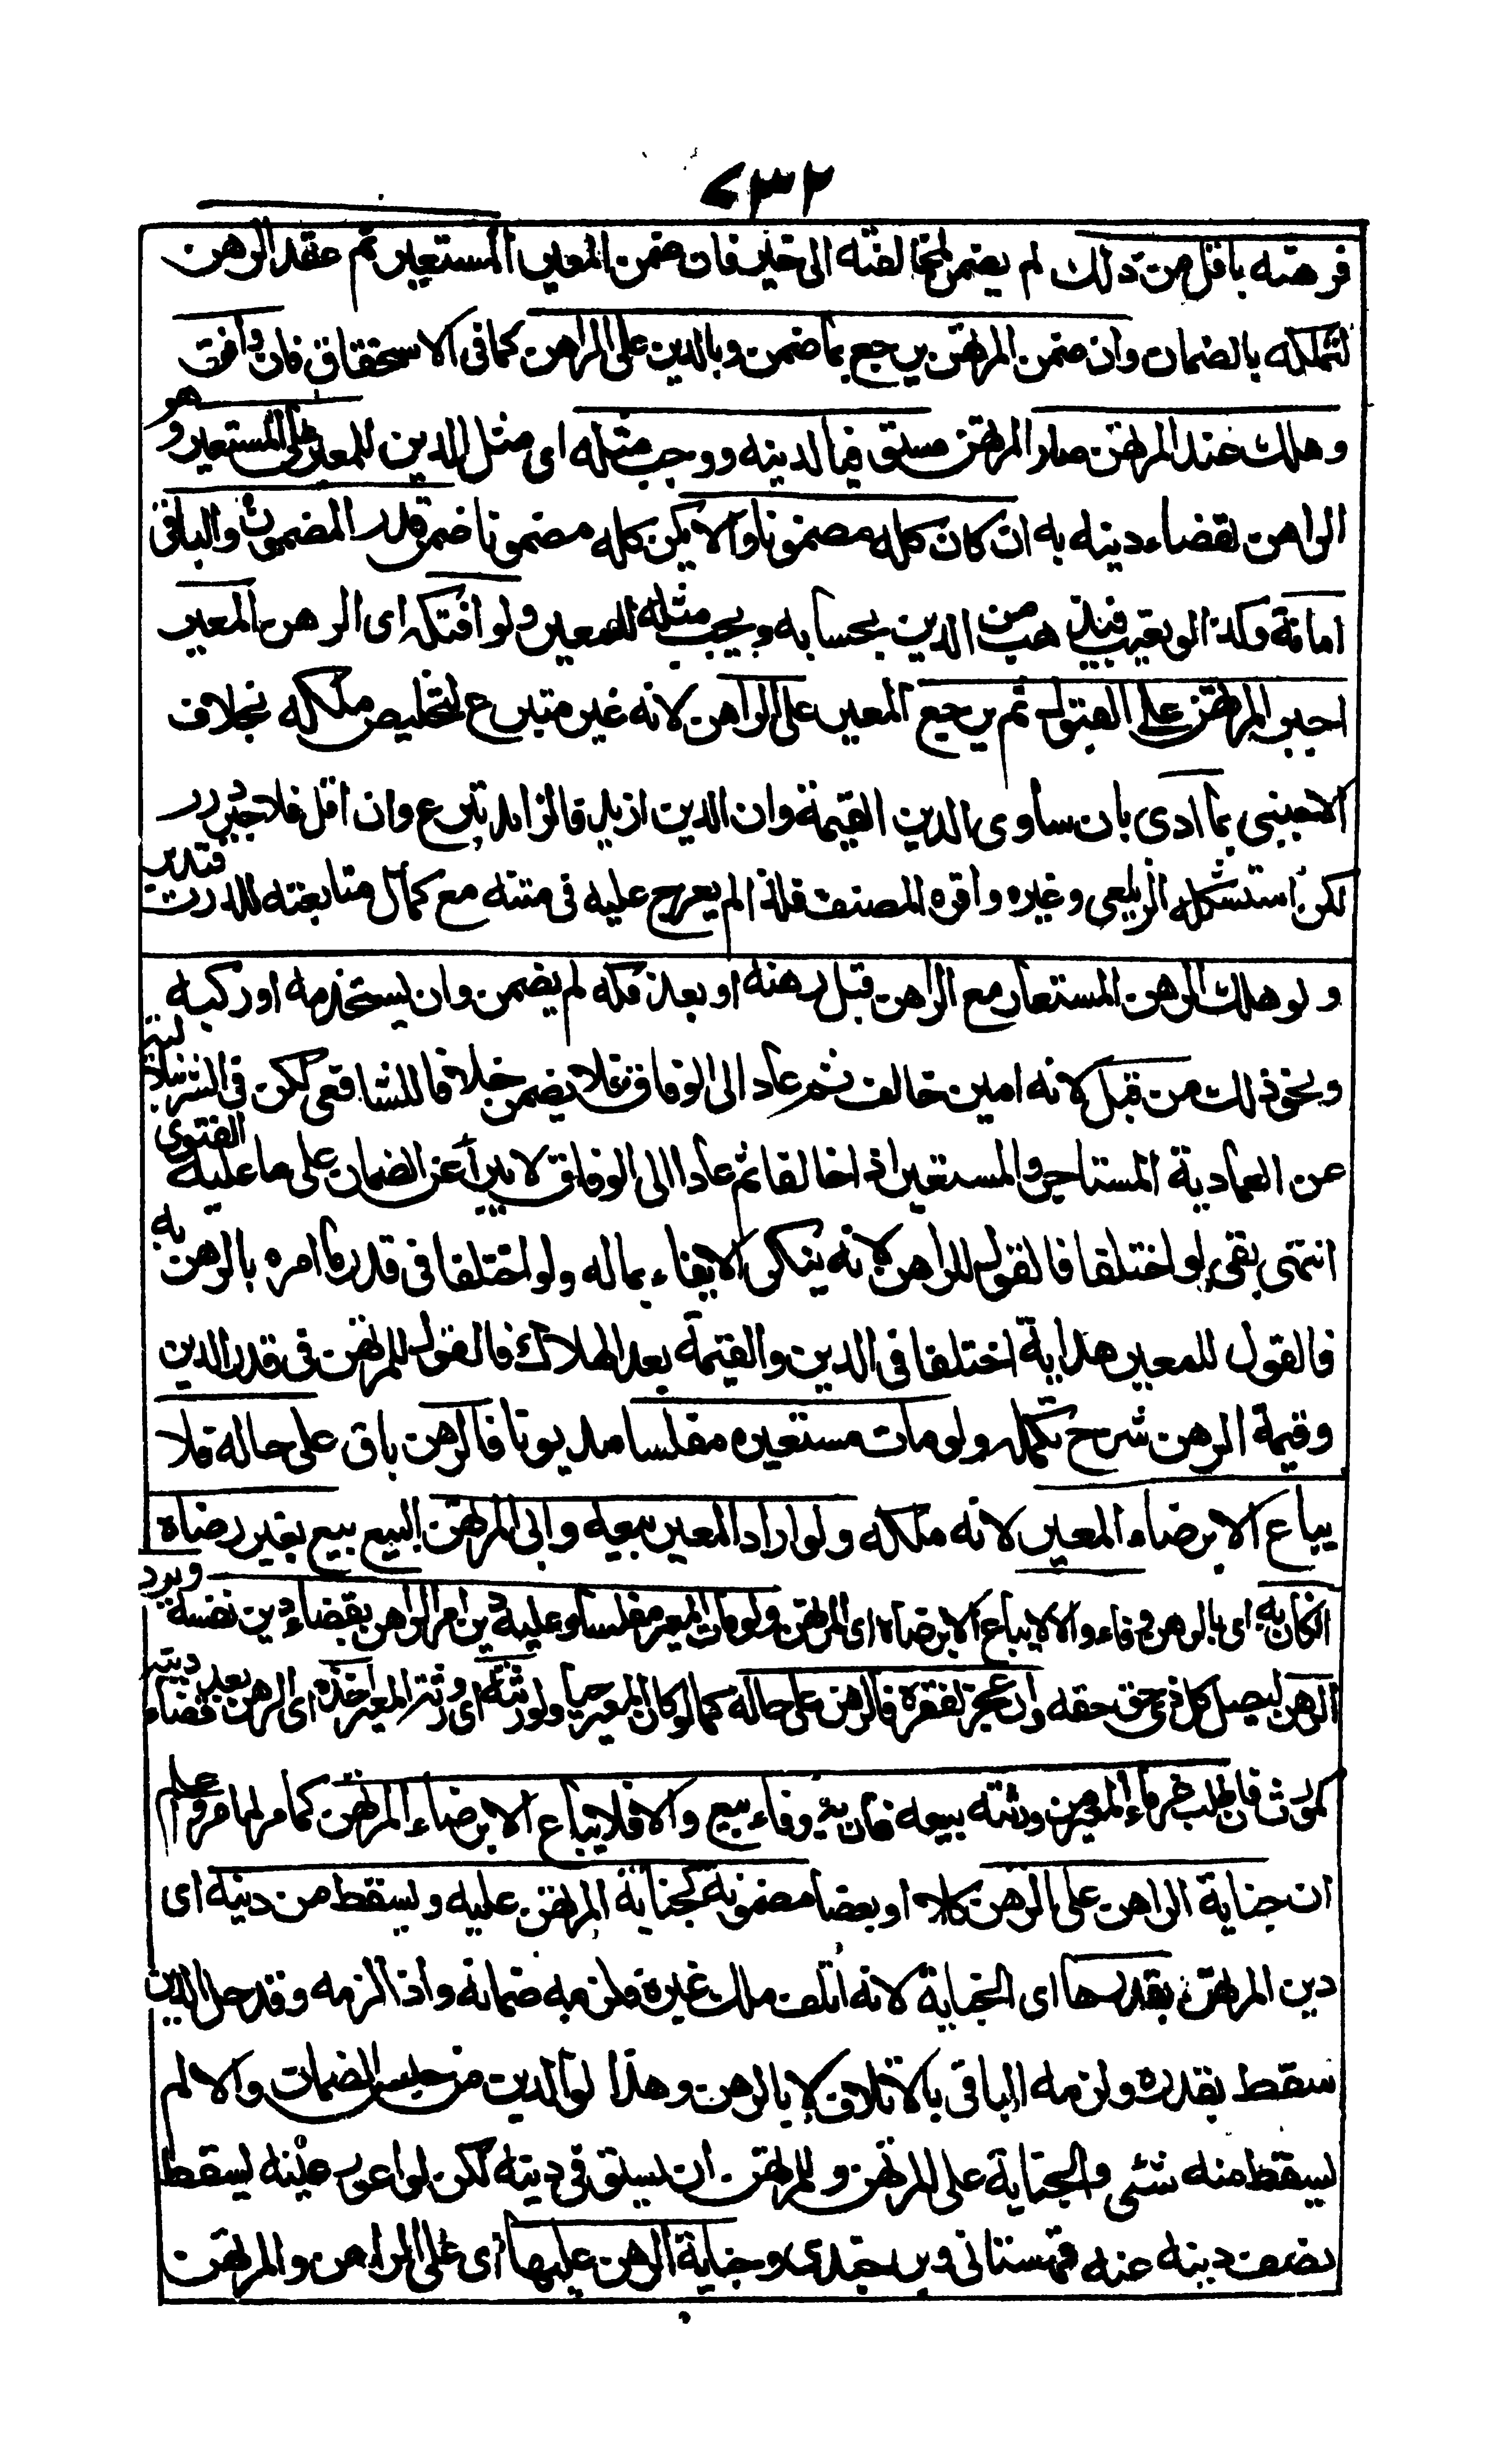 ٧٣٢
فرهنه باقل من ذلك لم يضمن لمخالفته الى خير فان ضمن المعير المستعير تم عقد الرهن
لتملكه بالضمان وان ضمن المرتهن يرجع بما ضمن وبالدين على الراهن كما فى الاستحقاق فان وافق
وهلك عند المرتهن صار المرتهن مستوفيا لدينه ووجب مثله اى مثل الدين للمعير على المستعير وهو
الراهن لقضاء دينه به ان كان كله مضمونا والا يكن كله مضمونا ضمن قدر المضمون والباقى
امانة وكذا لو تعيب فيذهب من الدين بحسابه ويجب مثله للمعير ولو افتكه اى الرهن المعير
اجبر المرتهن على القبول ثم يرجع المعير على الراهن لانه غير متبرع لتخليص ملكه بخلاف
الاجنبى بما ادى بان ساوى الدين القيمة وان الدين ازيد فالزائد تبرع وان اقل فلا جبر درر
لكن استشكله الزيلعى وغيره واقره المصنف فلذا لم يعرج عليه فى متنه مع كمال متابعته للدرر فتدبر
ولو هلك الرهن المستعار مع الراهن قبل رهنه او بعد فكه لم يضمن وان استخدمه او ركبه
ونحو ذلك من قبل لانه امين خالف ثم عاد الى الوفاق فلا يضمن خلافا للشافعى لكن فى الشرنبلالية
عن العمادية المستاجر والمستعير اذا خالفا ثم عادا الى الوفاق لا يبرأ عن الضمان على ما عليه الفتوى
انتهى بقى لو اختلفا فالقول للراهن لانه ينكر الايفاء بماله ولو اختلفا فى قدر ما امره بالرهن به
فالقول للمعير هداية اختلفا فى الدين والقيمة بعد الهلاك فالقول للمرتهن فى قدر الدين
وقيمة الرهن شرح تكمله ولو مات مستعيره مفلسا مديونا فالرهن باق على حاله فلا
يباع الا برضاء المعير لانه ملكه ولو اراد المعير بيعه وابى المرتهن البيع بيع بغير رضاه
ان كان به اى بالرهن وفاء والا لا يباع الا برضاه اى المرتهن ولو مات المعير مفلسا وعليه دين امر الراهن بقضاء دين نفسه ويرد
الرهن ليصل كل ذى حق حقه وان عجز لفقره فالرهن على حاله كما لو كان المعير حيا ولورثته اى ورثة المعير اخذه اى الرهن بعد قضاء دينه
كمورث فان طلب غرماء المعير من ورثته بيعه فان به وفاء بيع والا فلا يباع الا برضاء المرتهن كما مر لما مر واعلم
ان جناية الراهن على الرهن كلا او بعضا مضمونة كجناية المرتهن عليه ويسقط من دينه اى
دين المرتهن بقدرها اى الجناية لانه اتلف ملك غيره فلزمه ضمانه واذا لزمه وقد حل الدين
سقط بقدره ولزمه الباقى بالاتلاف لا بالرهن وهذا لو الدين من جنس الضمان والا لم
يسقط منه شئى والجناية على المرتهن وللمرتهن ان يستوفى دينه لكن لو اعور عينه يسقط
نصف دينه عنه قهستانى وبرجندى وجناية الرهن عليهما اى على الراهن والمرتهن